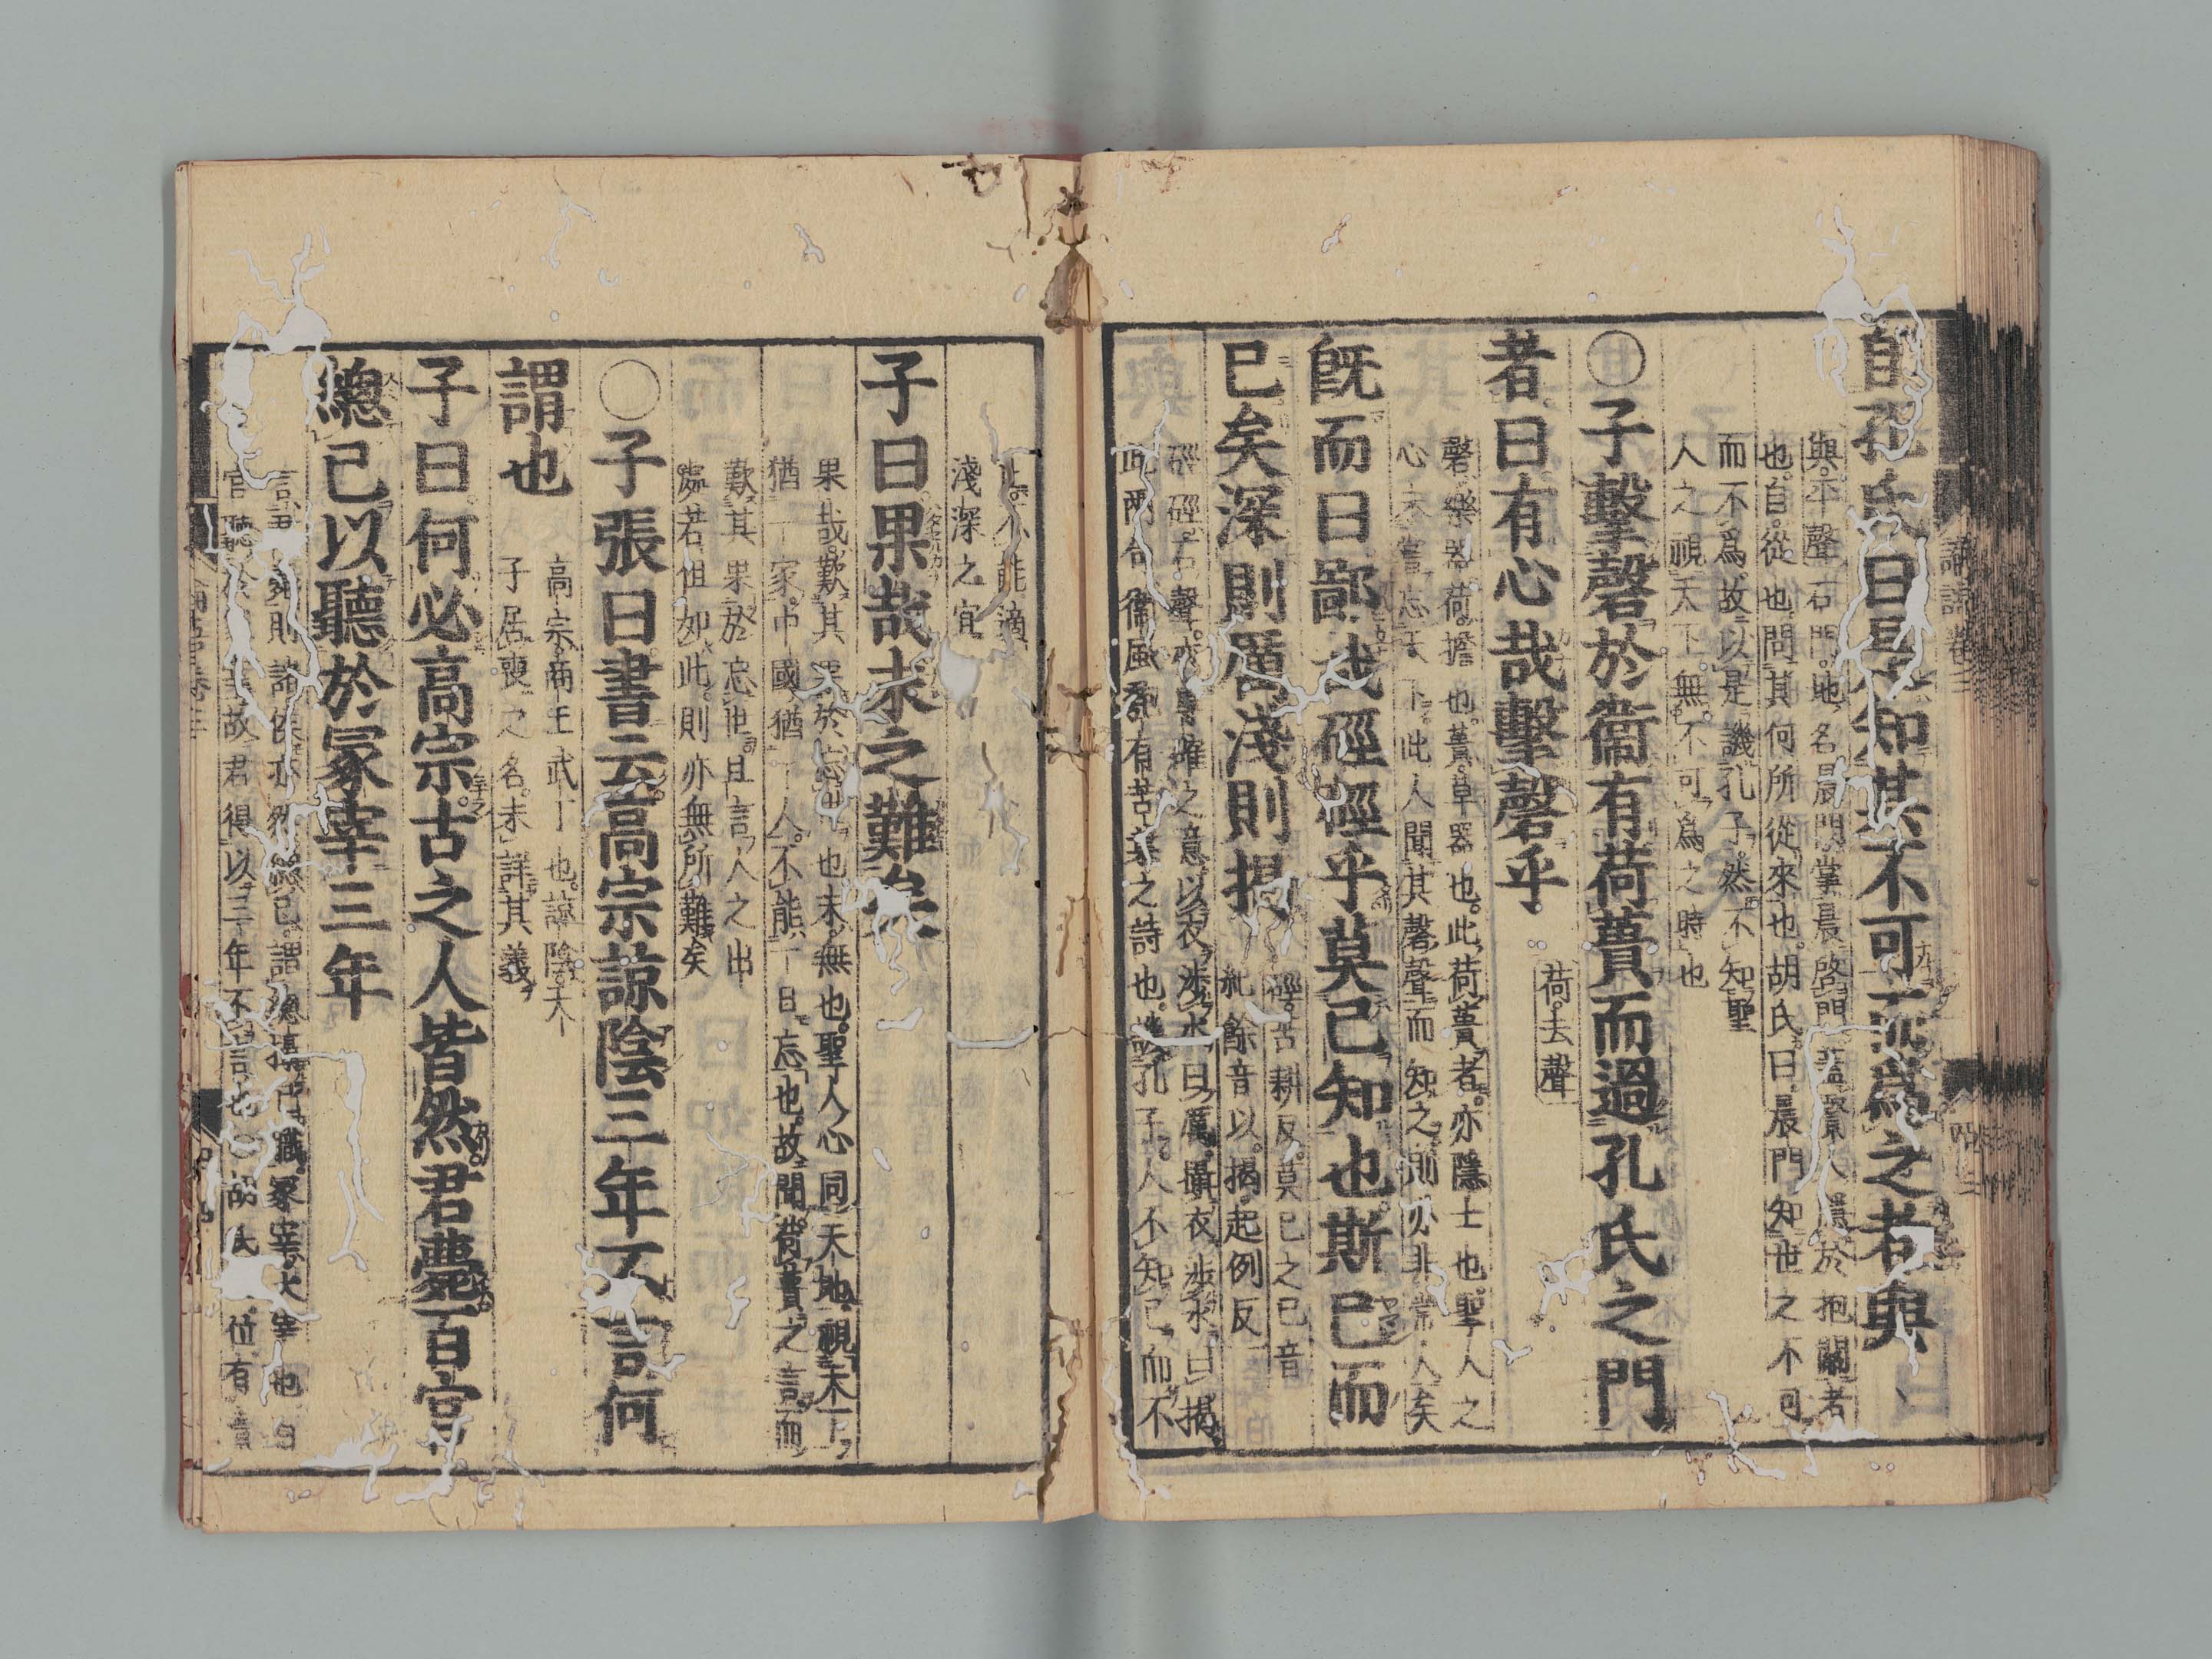 自孔氏曰是知其不可而爲之者與
與平聲石門地名晨門掌晨啓門蓋賢人隱於抱關者
也自從也問其何所從來也胡氏曰晨門知世之不可
而不爲故以是譏孔子然不知聖
人之視天下無不可爲之時也
○子擊磬於衞有荷蕢而過孔氏之門
者曰有心哉擊磬乎
荷去聲
磬樂器荷擔也蕢草器也此荷蕢者亦隱士也聖人之
心未嘗忘天下此人聞其磬聲而知之則亦非常人矣
旣而曰鄙哉硜硜乎莫己知也斯已而
已矣深則厲淺則揭
硜苦耕反莫己之己音
紀餘音以揭起例反
硜硜石聲亦專確之意以衣涉水曰厲攝衣涉水曰揭
此兩句衞風匏有苦葉之詩也譏孔子人不知己而不
止不能適
淺深之宜
子曰果哉末之難矣
果哉歎其果於忘世也末無也聖人心同天地視天下
猶一家中國猶一人不能一日忘也故聞荷蕢之言而
歎其果於忘世且言人之出
處若但如此則亦無所難矣
○子張曰書云高宗諒陰三年不言何
謂也
高宗商王武丁也諒陰天
子居喪之名未詳其義
子曰何必高宗古之人皆然君薨百官
總己以聽於冢宰三年
言君薨則諸侯亦然總己謂總攝己職冢宰大宰也百
官聽於冢宰故君得以三年不言也胡氏曰位有貴